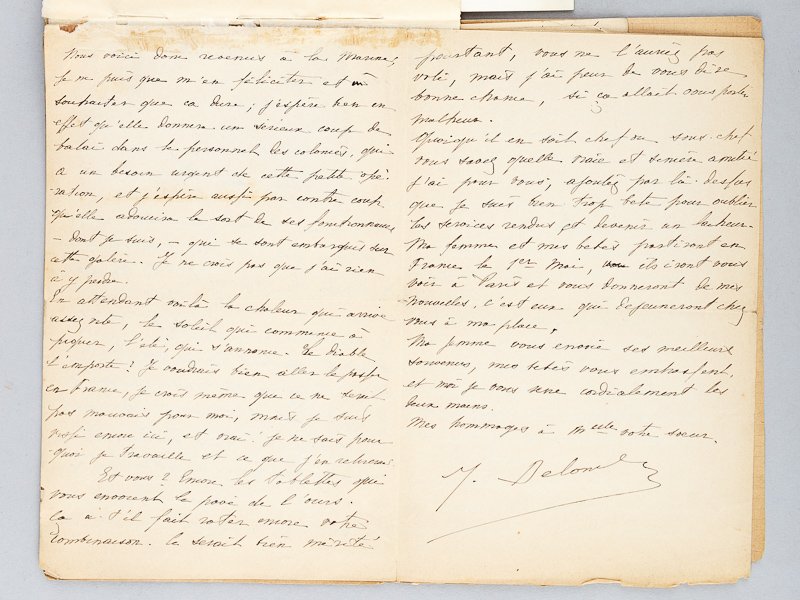 Nous voici donc revenus à la Marine;
je ne puis que m'en féliciter et
souhaiter que ça dure; j'espère bien en
effet qu'elle donnera un sérieux coup de
balai dans le personnel des colonies, qui
a un besoin urgent de cette petite opé-
ration, et j'espère aussi par contre coup
qu'elle adoucira le sort de ses fonctionnaires
- dont je suis, - qui se sont embarqués sur
cette galère. Je ne crois pas que j'ai rien
à y perdre.
En attendant voilà la chaleur qui arrive
assez vite, le soleil qui commence à
piquer, l'été, qui s'annonce. Le diable
l'emporte! Je voudrais bien aller le passer
en France, je crois même que ce ne serait
pas mauvais pour moi, mais je suis
encore ici, et vrai je ne sais pour
quoi je travaille et ce que j'en retirerai.
Et vous? Encore les tablettes qui
vous envoient le pavé de l'ours.
Ça a-t-il fait rater encore votre
combinaison. Ce serait bien mérité
pourtant, vous ne l'auriez pas
volé, mais j'ai peur de vous dire
bonne chance, si ça allait vous porter
malheur.
Quoiqu'il en soit chef ou sous-chef
vous savez quelle vraie et sincère amitié
j'ai pour vous, ajoutez par là-dessus
que je suis bien trop bête pour oublier
les services rendus et devenir un lâcheur.
Ma femme et mes bébés partiront en
France le 1er Mai, ils iront vous
voir à Paris et vous donneront de mes
nouvelles. C'est eux qui déjeuneront chez
vous à ma place.
Ma femme vous envoie ses meilleurs
souvenirs, mes bébés vous embrassent,
et moi je vous serre cordialement les
deux mains.
Mes hommages à Melle votre sœur.